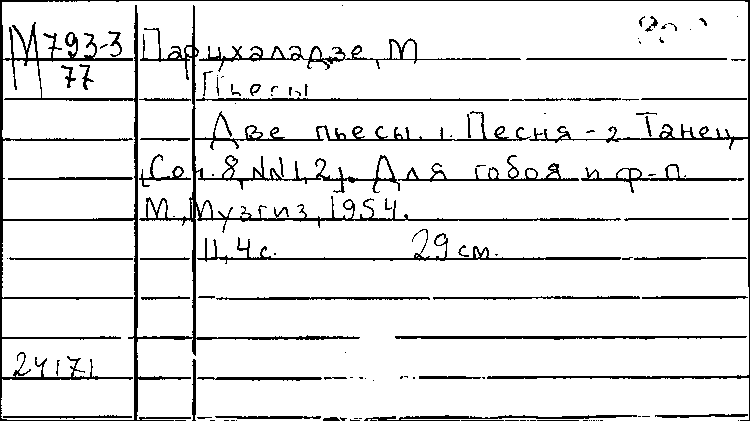 М 793-3 Парцхаладзе, М
77
Пьесы
Две пьесы. 1. Песня - 2. Танец
[Соч. 8, NN1, 2]. Для гобоя и ф-п
М., Музгиз, 1954.
11, 4 с. 29 см.
24171